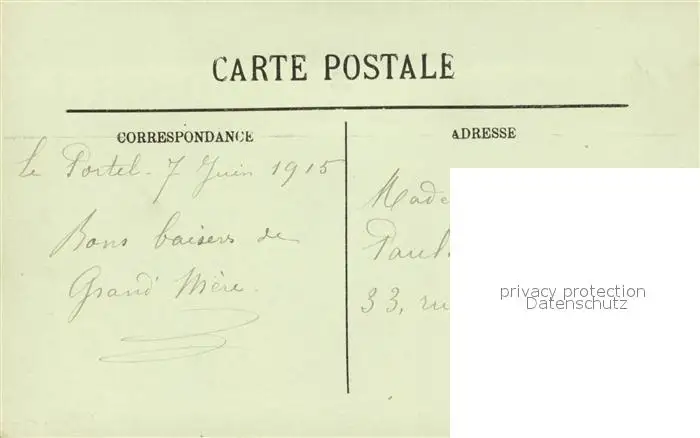 CARTE POSTALE
CORRESPONDANCE
ADRESSE
Le Portel - 7 Juin 1915
Bons baisers de
Grand' Mère.
Made
Paul
33, ru
privacy protection
Datenschutz